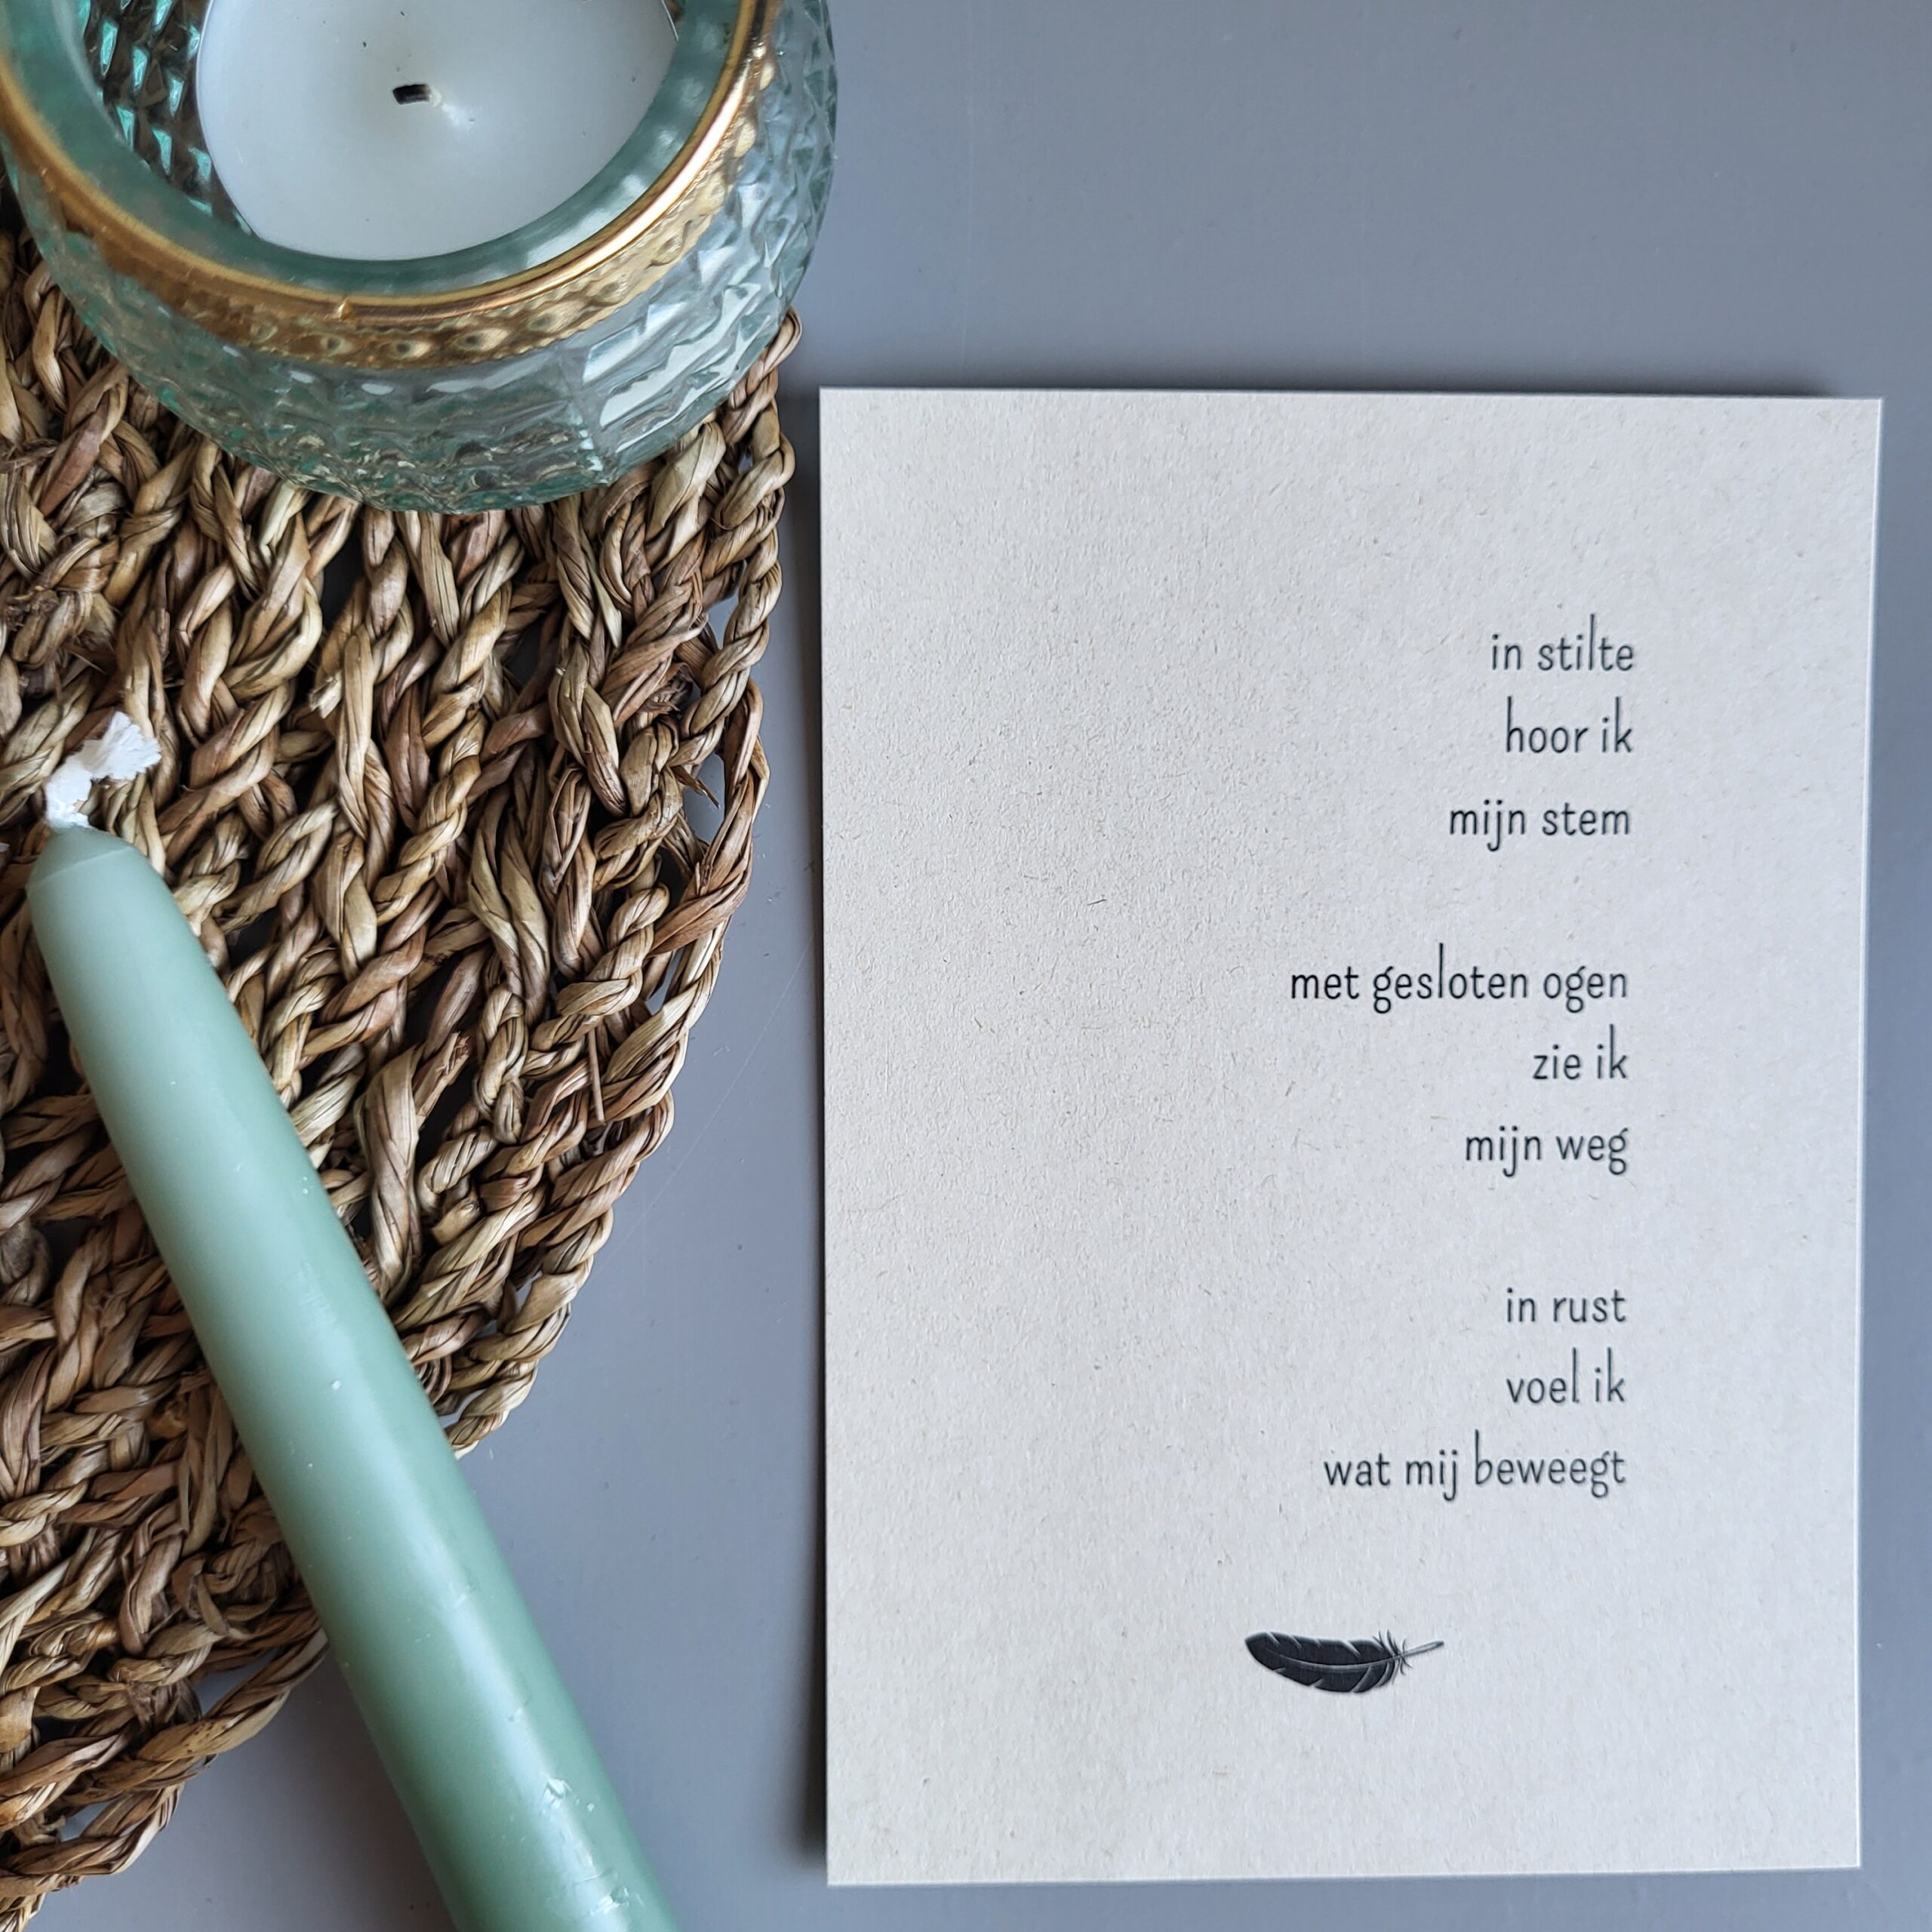 in stilte
hoor ik
mijn stem
met gesloten ogen
zie ik
mijn weg
in rust
voel ik
wat mij beweegt